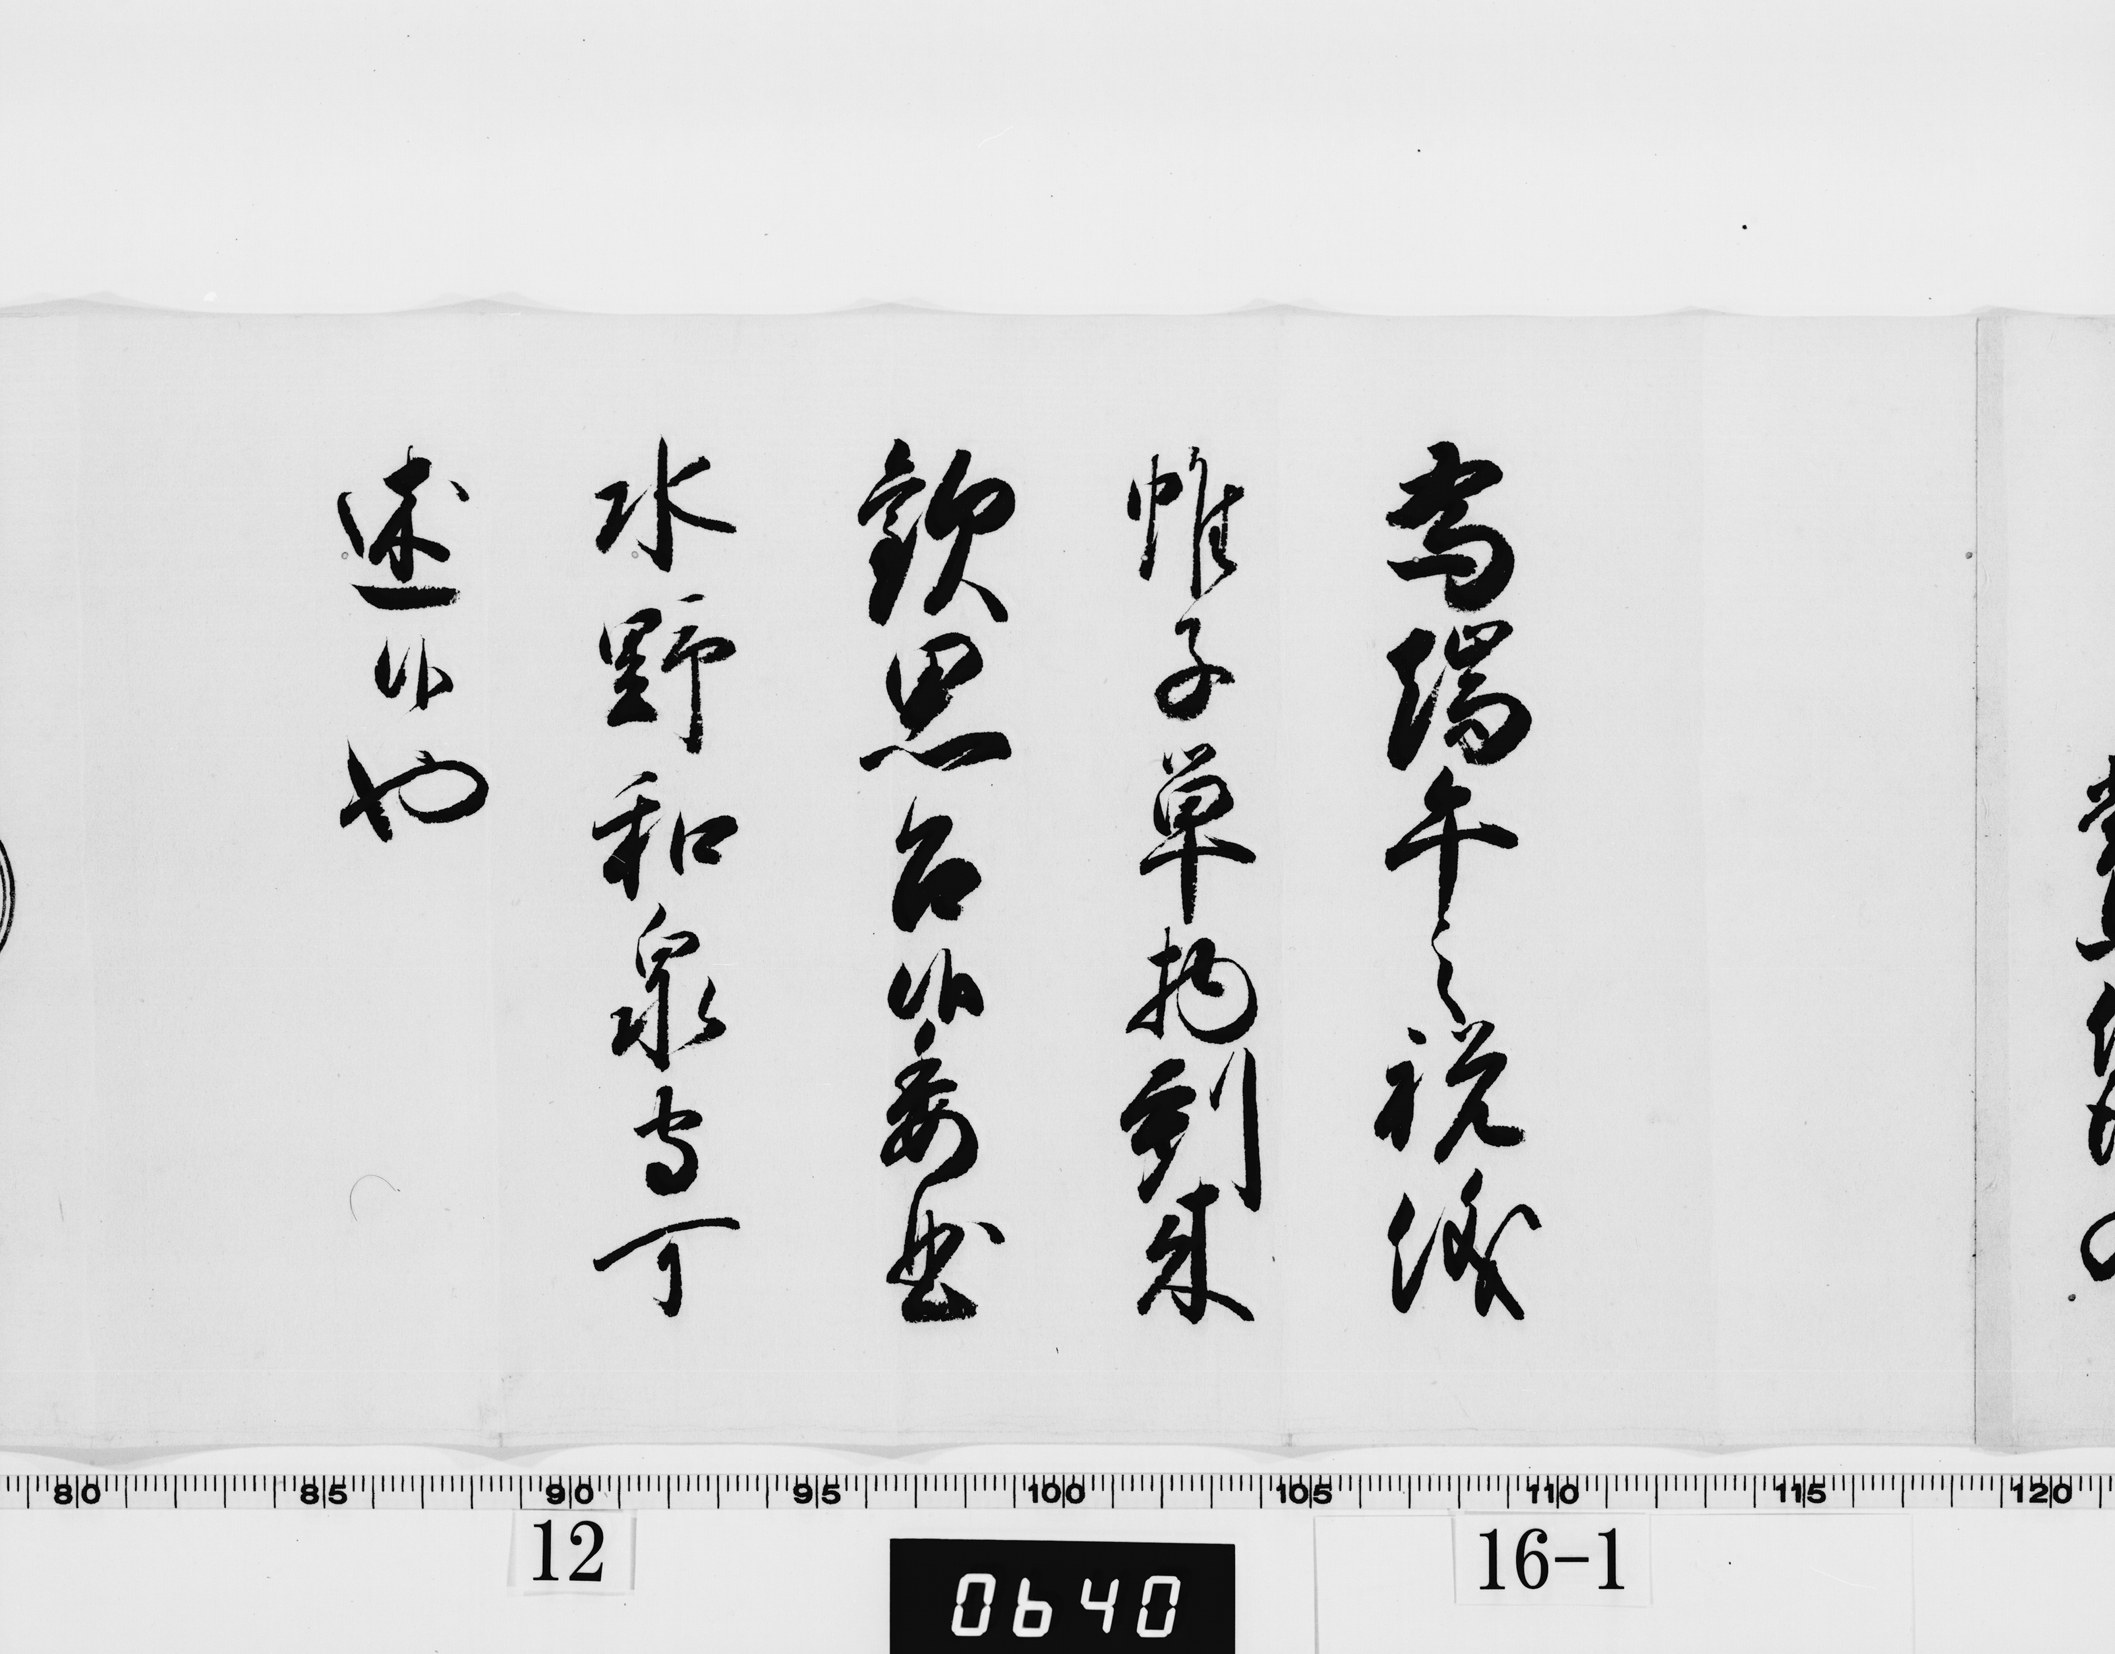 為端午之祝儀
帷子単物到来
歓思召候委曲
水野和泉守可
述候也
80 85 90 95 100 105 110 115 120
12
0640
16-1